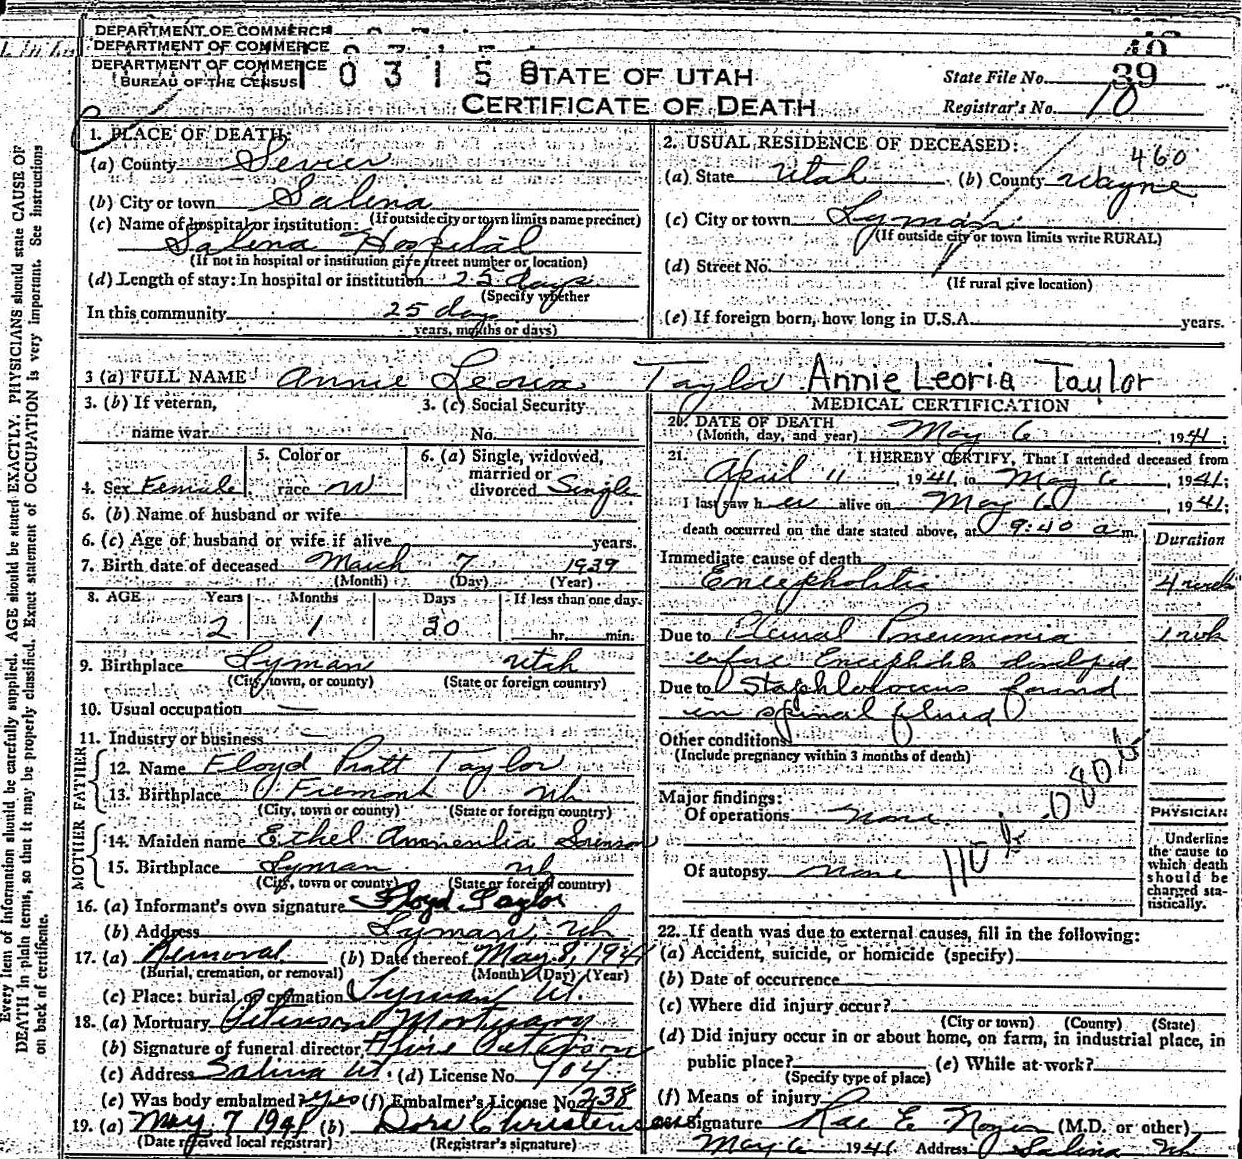 DEPARTMENT OF COMMERCE
DEPARTMENT OF COMMERCE
DEPARTMENT OF COMMERCE
BUREAU OF THE CENSUS
STATE OF UTAH
CERTIFICATE OF DEATH
State File No. 39
Registrar's No. 10
1. PLACE OF DEATH:
(a) County Sevier
(b) City or town Salina
(If outside city or town limits name precinct)
(c) Name of hospital or institution:
Salina Hospital
(If not in hospital or institution give street number or location)
(d) Length of stay: In hospital or institution 25 days
(Specify whether
In this community 25 days
years, months or days)
2. USUAL RESIDENCE OF DECEASED:
460
(a) State Utah (b) County Wayne
(c) City or town Lyman
(If outside city or town limits write RURAL)
(d) Street No.
(If rural give location)
(e) If foreign born, how long in U.S.A. years.
3 (a) FULL NAME Annie Leoria Taylor Annie Leoria Taylor
3. (b) If veteran,
name war
3. (c) Social Security
No.
4. Sex Female
5. Color or
race W
6. (a) Single, widowed,
married or
divorced Single
6. (b) Name of husband or wife
6. (c) Age of husband or wife if alive years.
7. Birth date of deceased March 7 1939
(Month) (Day) (Year)
8. AGE Years Months Days If less than one day
2 1 30 hr. min.
9. Birthplace Lyman Utah
(City, town, or county) (State or foreign country)
10. Usual occupation —
11. Industry or business —
FATHER
12. Name Floyd Pratt Taylor
13. Birthplace Fremont Ut
(City, town or county) (State or foreign country)
MOTHER
14. Maiden name Ethel Ammentia Sorenson
15. Birthplace Lyman Ut
(City, town or county) (State or foreign country)
16. (a) Informant's own signature Floyd Taylor
(b) Address Lyman, Uh
17. (a) Removal (b) Date thereof May 8, 1941
(Burial, cremation, or removal) (Month) (Day) (Year)
(c) Place: burial or cremation Lyman Ut.
18. (a) Mortuary Peterson Mortuary
(b) Signature of funeral director
(c) Address Salina Ut. (d) License No. 904
(e) Was body embalmed? yes (f) Embalmer's License No. 238
19. (a) May 7 1941 (b) Dora Christensen
(Date received local registrar) (Registrar's signature)
MEDICAL CERTIFICATION
20. DATE OF DEATH
(Month, day, and year) May 6, 1941;
21. I HEREBY CERTIFY, That I attended deceased from
April 11, 1941, to May 6, 1941;
I last saw her alive on May 6, 1941;
death occurred on the date stated above, at 9:40 a m.
Duration
Immediate cause of death
Encepholitis 4 weeks
Due to Pleural Pneumonia 1 wk
before Encepholitis developed
Due to Staphlococus found
in spinal fluid
Other conditions
(Include pregnancy within 3 months of death)
Major findings:
Of operations none
Of autopsy none
PHYSICIAN
Underline
the cause to
which death
should be
charged sta-
tistically.
22. If death was due to external causes, fill in the following:
(a) Accident, suicide, or homicide (specify)
(b) Date of occurrence
(c) Where did injury occur?
(City or town) (County) (State)
(d) Did injury occur in or about home, on farm, in industrial place, in
public place? (e) While at work?
(Specify type of place)
(f) Means of injury
Signature Rae E. Noyes (M.D. or other)
May 6 1941 Address Salina Uh
Every item of information should be carefully supplied. AGE should be stated EXACTLY. PHYSICIANS should state CAUSE OF
DEATH in plain terms, so that it may be properly classified. Exact statement of OCCUPATION is very important. See instructions
on back of certificate.